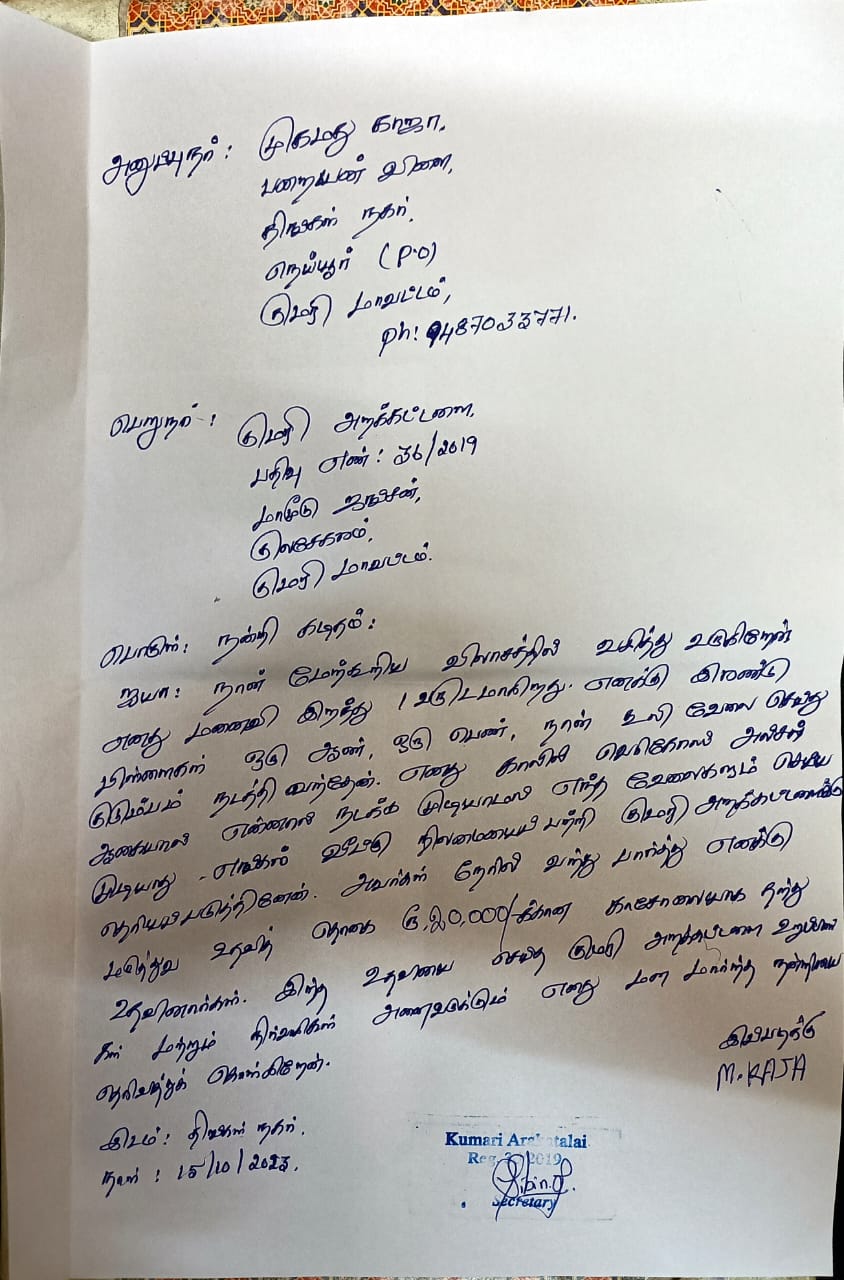 அனுப்புநர் : முகமது காஜா,
பறையன் விளை,
திங்கள் நகர்,
நெய்யூர் (P.O)
குமரி மாவட்டம்,
Ph: 9487033771.
பெறுநர் : குமரி அறக்கட்டளை,
பதிவு எண் : 36/2019
மாமூடு ஜங்சன்,
குலசேகரம்,
குமரி மாவட்டம்.
பொருள் : நன்றி கடிதம் :
ஐயா : நான் மேற்கூறிய விலாசத்தில் வசித்து வருகிறேன்
எனது மனைவி இறந்து 1 வருடமாகிறது. எனக்கு இரண்டு
பிள்ளைகள் ஒரு ஆண், ஒரு பெண், நான் கூலி வேலை செய்து
குடும்பம் நடத்தி வந்தேன். எனது காலில் வெரிகோஸ் அல்சர்
ஆகையால் என்னால் நடக்க முடியாமல் எந்த வேலைகளும் செய்ய
முடியாது எங்கள் வீட்டு நிலமையை பற்றி குமரி அறக்கட்டளைக்கு
தெரியபடுத்தினேன். அவர்கள் நேரில் வந்து பார்த்து எனக்கு
மருத்துவ உதவித் தொகை ரூ.20,000/-க்கான காசோலையாக தந்து
உதவினார்கள். இந்த உதவியை செய்த குமரி அறக்கட்டளை உறுப்பினர்
கள் மற்றும் நிர்வாகிகள் அனைவருக்கும் எனது மன மார்ந்த நன்றியை
தெரிவித்துக் கொள்கிறேன்.
இப்படிக்கு
M.KAJA
இடம் : திங்கள் நகர்.
நாள் : 15/10/2023.
Kumari Arakatalai
Reg. 2019
Secretary